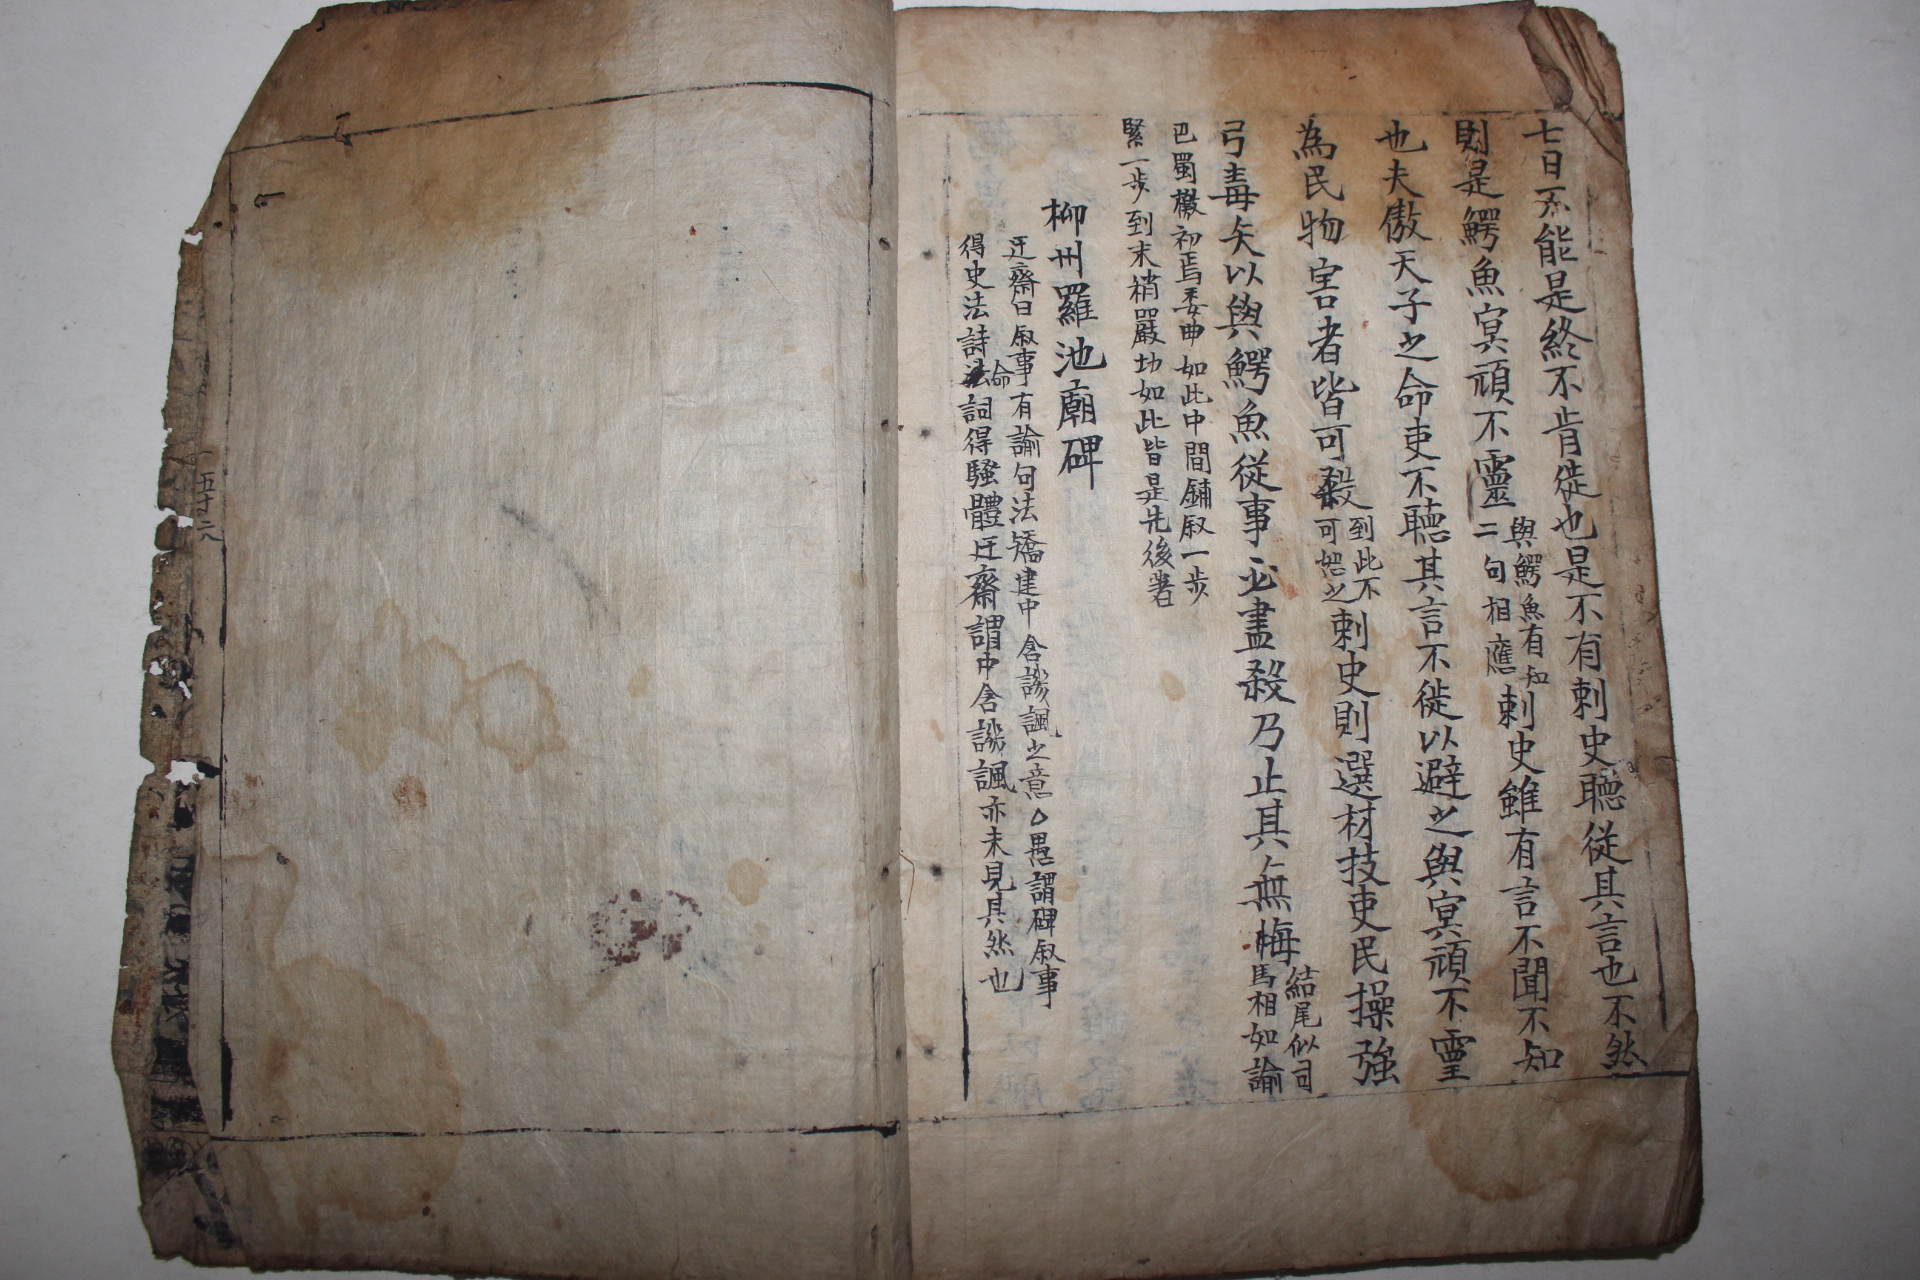 七日不能是終不肯徙也是不有刺史聽從其言也不然
則是鰐魚冥頑不靈
與鰐魚有知
二句相應
刺史雖有言不聞不知
也夫傲天子之命吏不聽其言不徙以避之與冥頑不靈
為民物害者皆可殺
到此不
可恕之
刺史則選材技吏民操強
弓毒矢以與鰐魚從事必盡殺乃止其無悔
結尾似司
馬相如諭
巴蜀檄初焉委曲如此中間鋪叙一步
緊一步到末稍嚴切如此皆是先後著
柳州羅池廟碑
迂齋曰叙事有諭句法矯健中含譏諷之意○愚謂碑叙事
得史法詩法命詞得騷體迂齋謂中含譏諷亦未見其然也
五十二